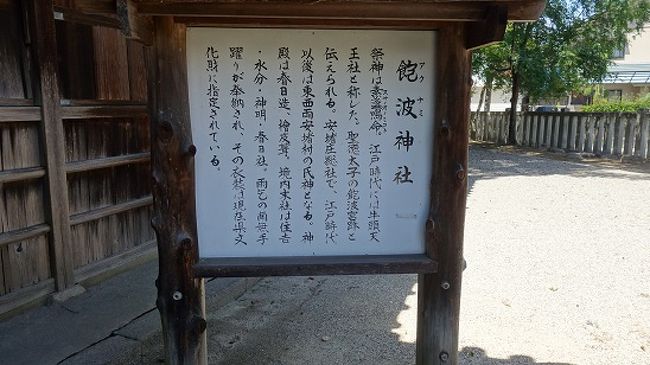 アクナミ
飽波神社
祭神は素盞嗚命。江戸時代には牛頭天
王社と称した。聖徳太子の飽波宮跡と
伝えられる。安堵庄総社で、江戸時代
以後は東西両安堵村の氏神となる。神
殿は春日造、檜皮葺、境内末社は住吉
・水分・神明・春日社。雨乞の南無手
踊りが奉納され、その衣装は現在県文
化財に指定されている。